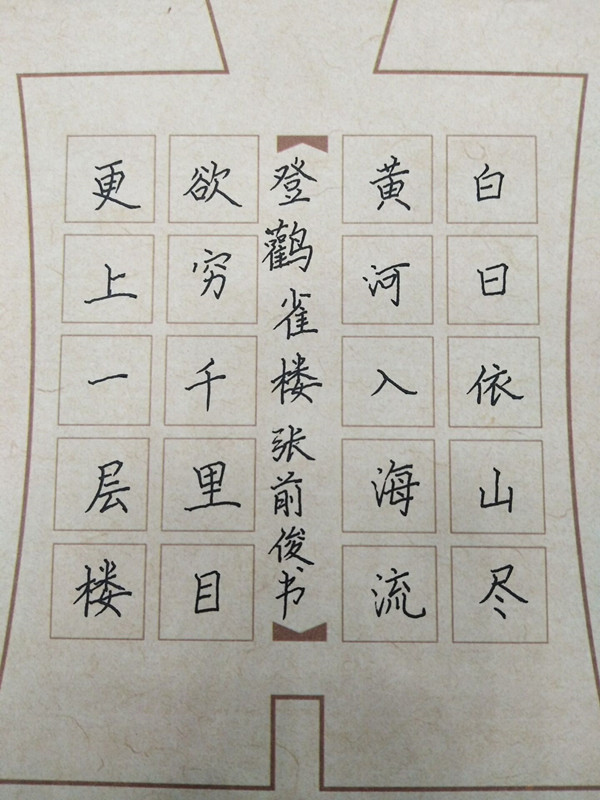 白日依山尽
黄河入海流
登鹳雀楼 张前俊书
欲穷千里目
更上一层楼